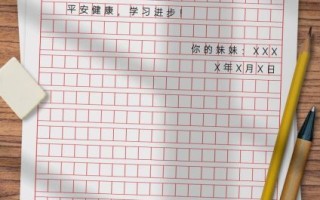 平安健康，学习进步！
你的妹妹：XXX
X年X月X日